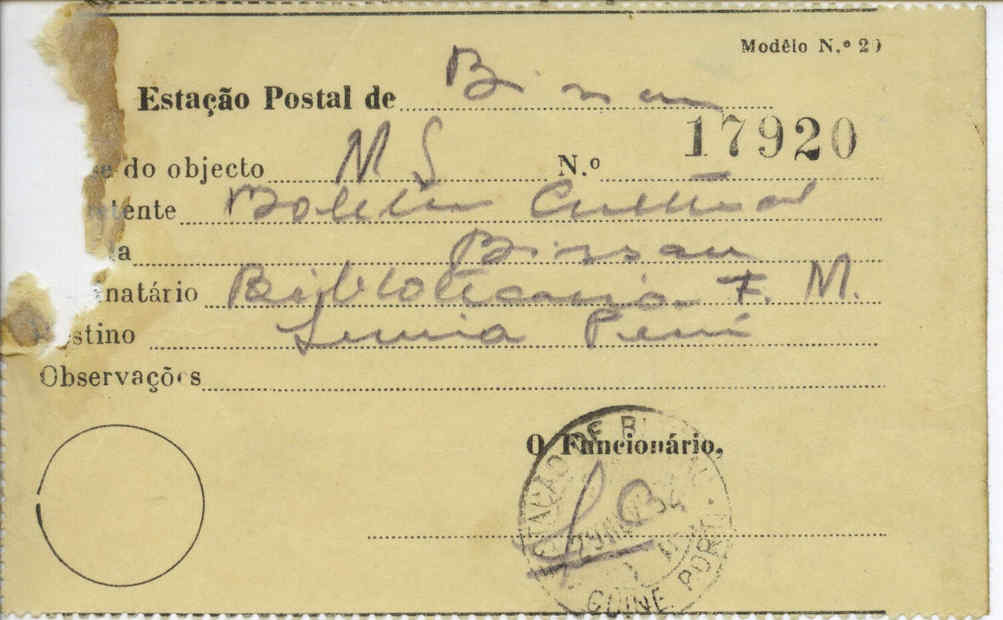 Modêlo N.º 29
Estação Postal de Bissau
do objecto M S N.º 17920
tente Boletim Cultural
a Bissau
natário Bibliotecario F. M.
stino Lima Perú
Observações
O Funcionário,
ESTAÇÃO DE
GUINÉ PORT